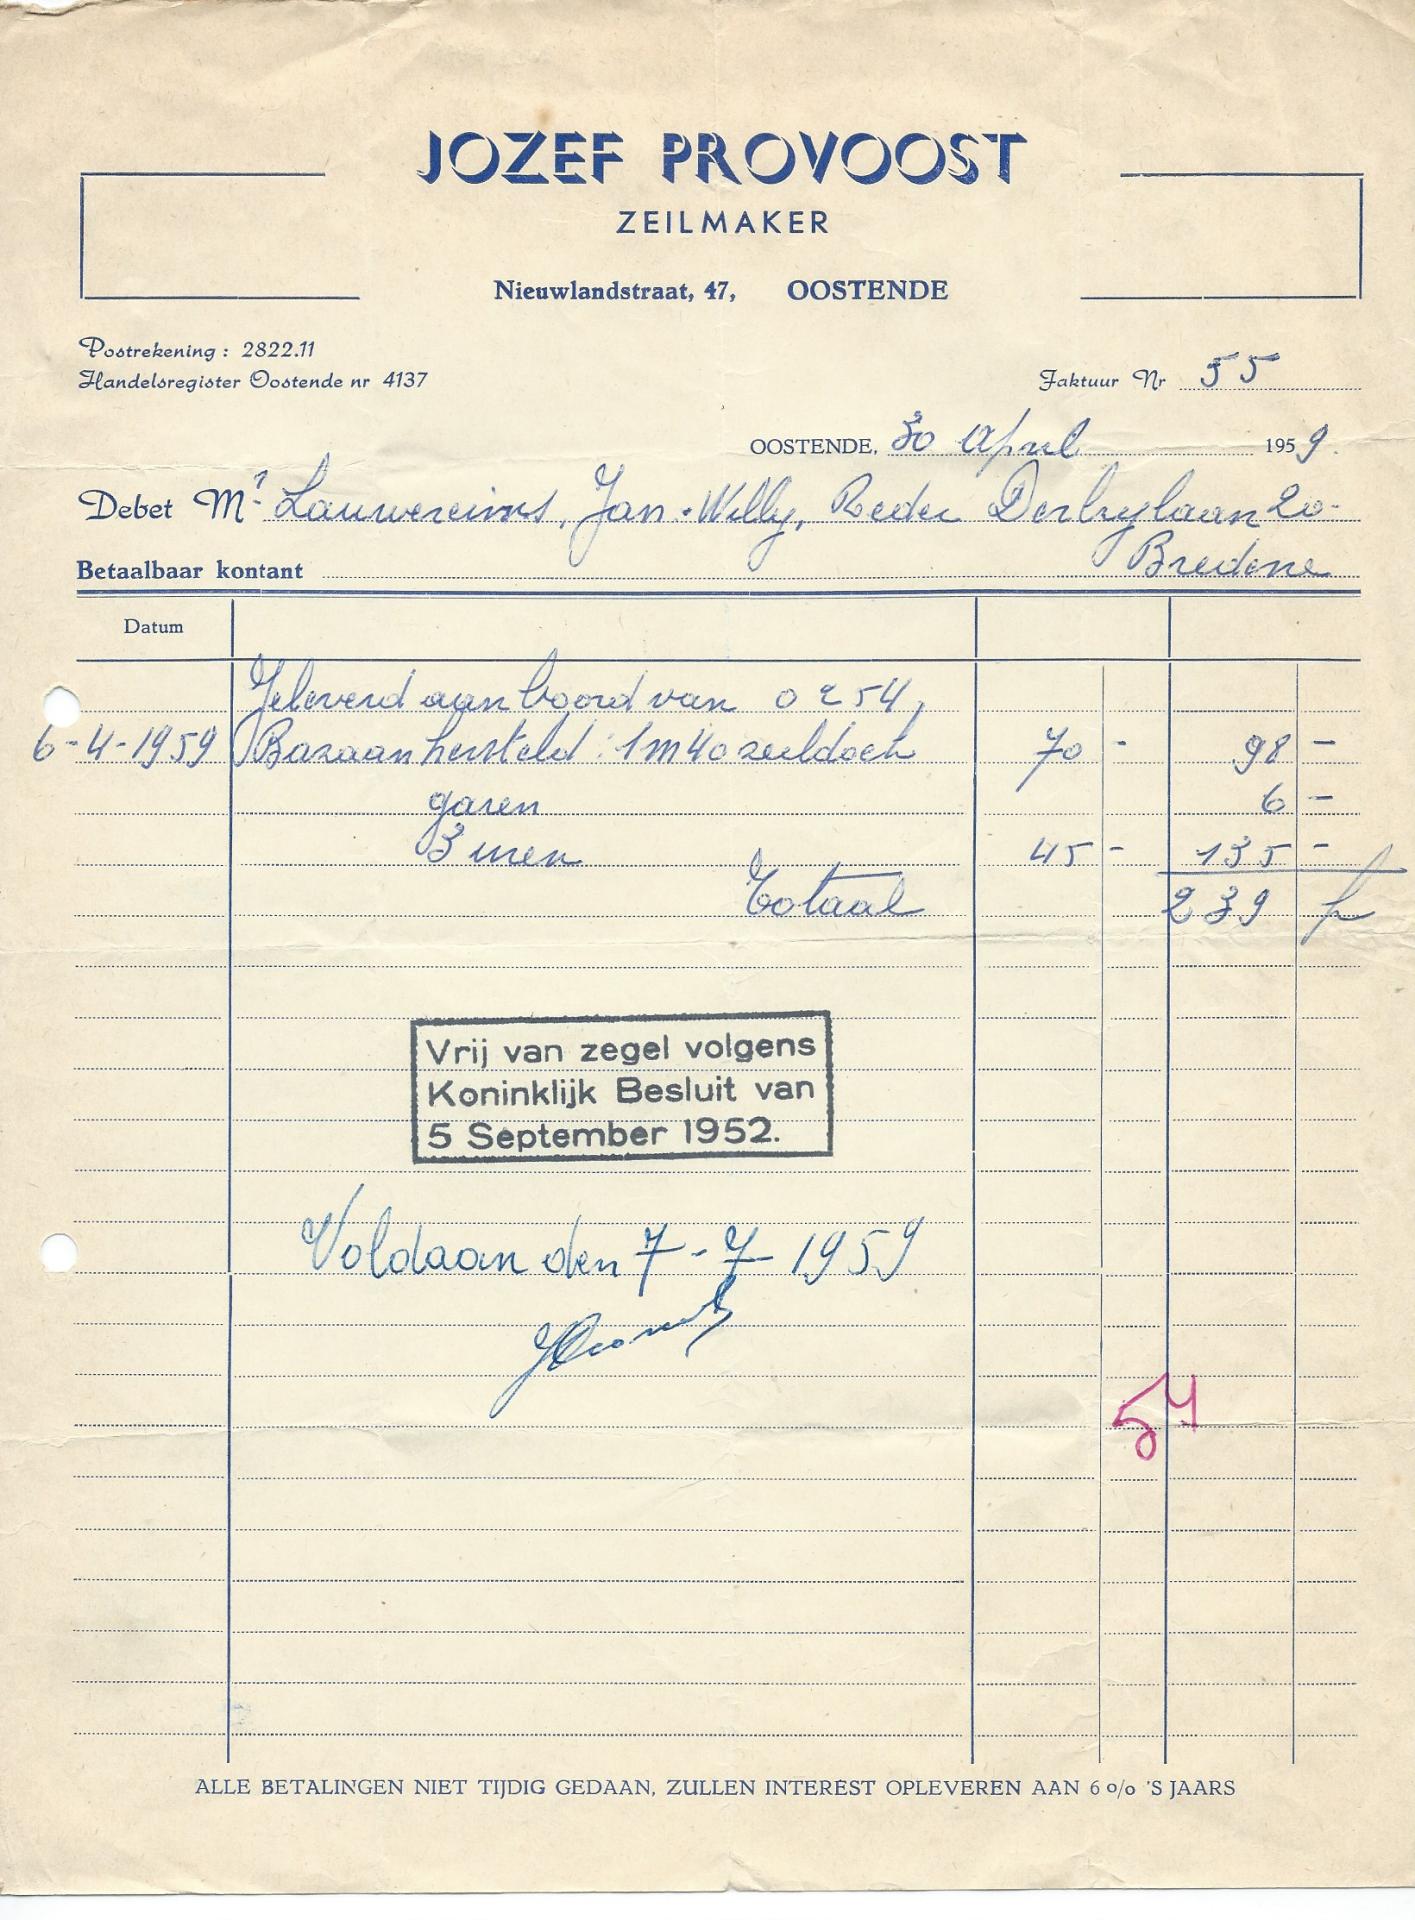 JOZEF PROVOOST
ZEILMAKER
Nieuwlandstraat, 47, OOSTENDE
Postrekening : 2822.11
Handelsregister Oostende nr 4137
Faktuur Nr 55
OOSTENDE, 30 April 1959.
Debet Mr. Lauwereins, Jan-Willy, Reder Derbylaan 20-
Betaalbaar kontant Bredene
Datum
Geleverd aan boord van 0254,
6-4-1959 Bazaan hersteld: 1m40 zeildoek 70 - 98 -
garen 6 -
3 uren 45 - 135 -
Totaal 239 fr
Vrij van zegel volgens
Koninklijk Besluit van
5 September 1952.
Voldaan den 7-7-1959
54
ALLE BETALINGEN NIET TIJDIG GEDAAN, ZULLEN INTEREST OPLEVEREN AAN 6 o/o 'S JAARS